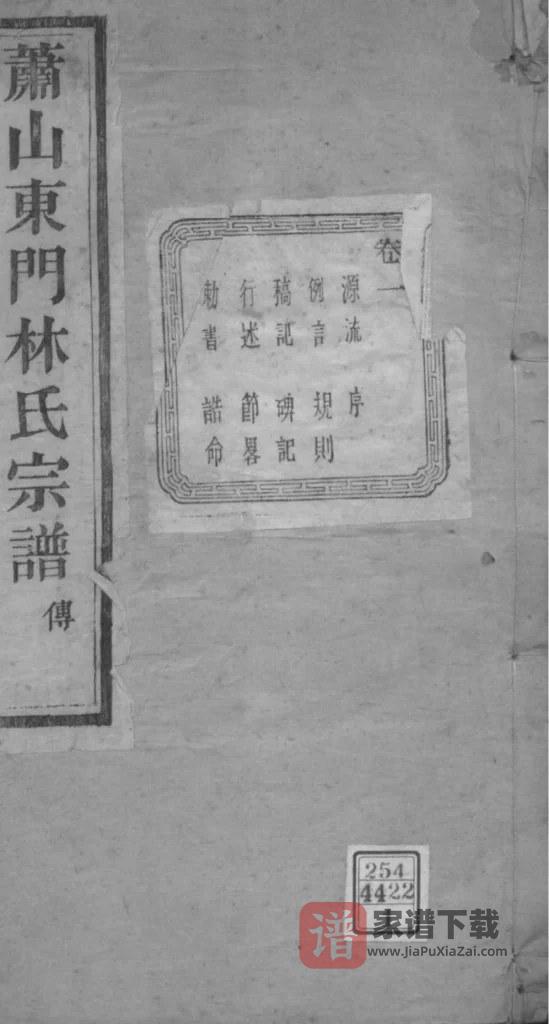 蕭山東門林氏宗譜
傳
卷一
源流 序
例言 規則
稿記 碑記
行述 節畧
勅書 誥命
254
4422
谱 家谱下载
www.JiaPuXiaZai.com